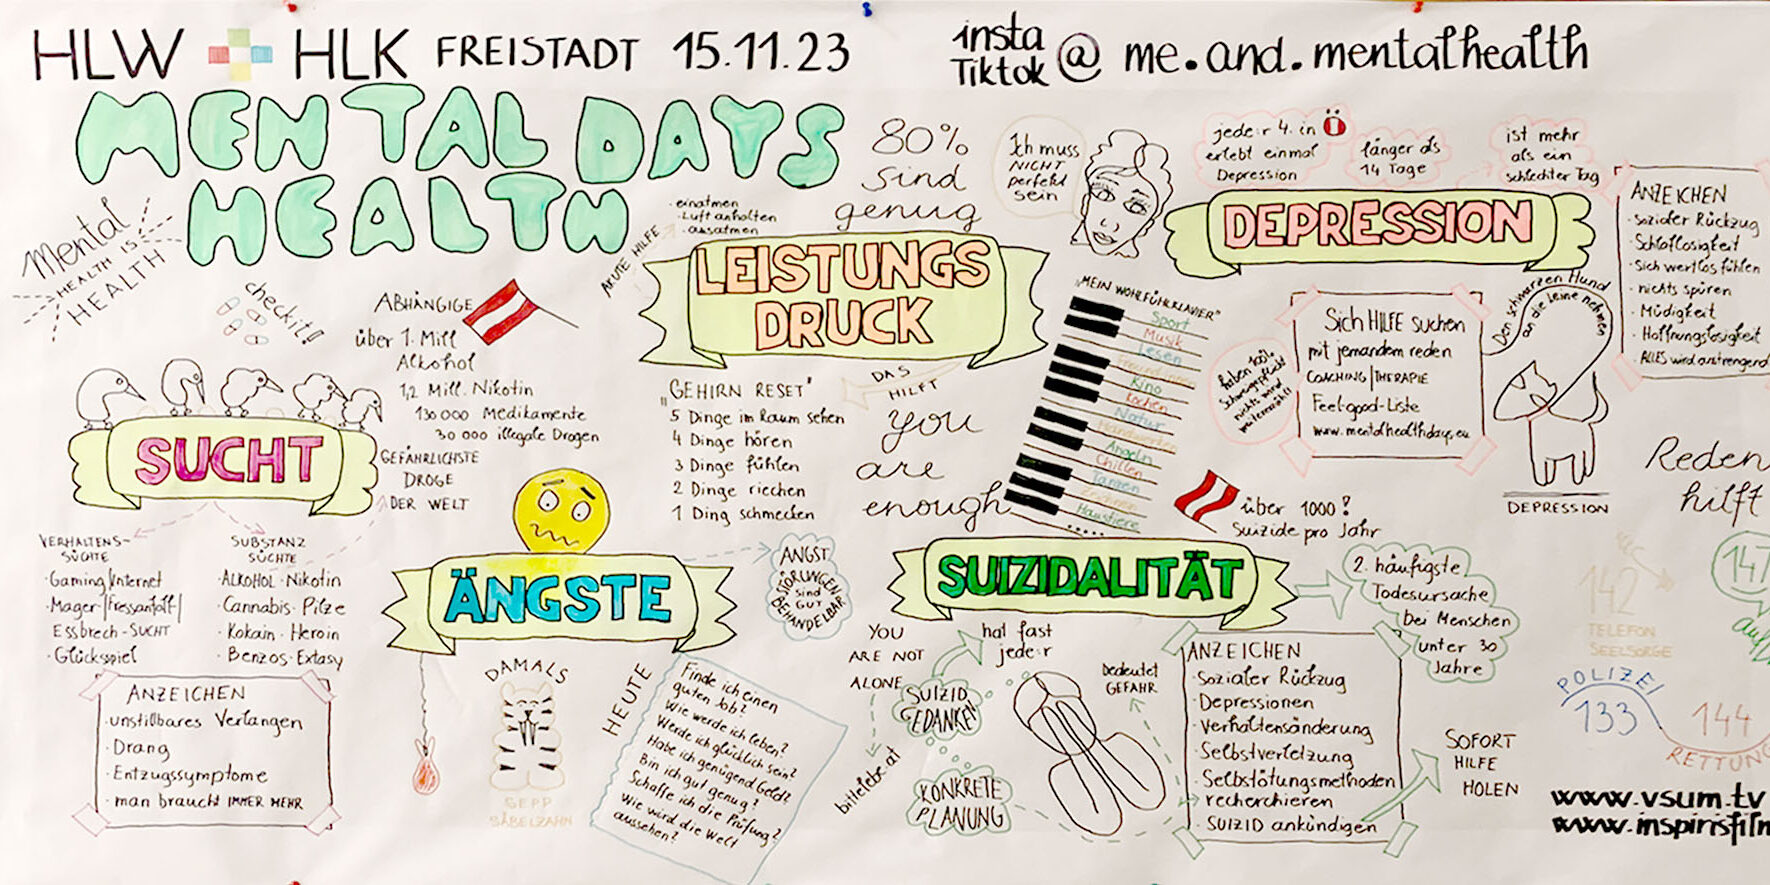 HLW HLK FREISTADT 15.11.23
insta
Tiktok @ me.and.mentalhealth
MENTAL DAYS
HEALTH
Mental
HEALTH IS
HEALTH
check it!
ABHÄNGIGE
über 1. Mill
Alkohol
1,2 Mill. Nikotin
130 000 Medikamente
30 000 illegale Drogen
GEFÄHRLICHSTE
DROGE
DER WELT
SUCHT
VERHALTENS-
SÜCHTE
·Gaming/Internet
·Mager-/Fressanfall/
Essbrech-SUCHT
·Glücksspiel
SUBSTANZ
SÜCHTE
·ALKOHOL·Nikotin
·Cannabis·Pilze
·Kokain·Heroin
·Benzos·Extasy
ANZEICHEN
·unstillbares Verlangen
·Drang
·Entzugssymptome
·man braucht IMMER MEHR
AKUTE HILFE
·einatmen
·Luft anhalten
·ausatmen
80%
sind
genug
LEISTUNGS
DRUCK
"GEHIRN RESET"
5 Dinge im Raum sehen
4 Dinge hören
3 Dinge fühlen
2 Dinge riechen
1 Ding schmecken
DAS
HILFT
you
are
enough
Ich muss
NICHT
perfekt
sein
"MEIN WOHLFÜHLKLAVIER"
Sport
Musik
Lesen
Kino
Kochen
Natur
Angeln
Chillen
Tanzen
Zeichnen
Haustiere
.....
ÄNGSTE
ANGST
STÖRUNGEN
sind
GUT
BEHANDELBAR
DAMALS
SEPP
SÄBELZAHN
HEUTE
Finde ich einen
guten Job?
Wie werde ich leben?
Werde ich glücklich sein?
Habe ich genügend Geld?
Bin ich gut genug?
Schaffe ich die Prüfung?
Wie wird die Welt
aussehen?
jede:r 4. in Ö
erlebt einmal
Depression
länger als
14 Tage
ist mehr
als ein
schlechter Tag
DEPRESSION
ANZEICHEN
·sozialer Rückzug
·Schlaflosigkeit
·sich wertlos fühlen
·nichts spüren
·Müdigkeit
·Hoffnungslosigkeit
·ALLES wird anstrengend
Sich HILFE suchen
mit jemandem reden
COACHING/THERAPIE
Feel-good-Liste
www.mentalhealthdays.eu
haben 100%
Schweigepflicht
nichts wird
weitererzählt
Den schwarzen Hund
an die Leine nehmen
DEPRESSION
Reden
hilft
über 1000!
Suizide pro Jahr
SUIZIDALITÄT
2. häufigste
Todesursache
bei Menschen
unter 30
Jahre
YOU
ARE NOT
ALONE
bittelebe.at
hat fast
jede:r
SUIZID
GEDANKEN
KONKRETE
PLANUNG
bedeutet
GEFAHR
ANZEICHEN
·Sozialer Rückzug
·Depressionen
·Verhaltensänderung
·Selbstverletzung
·Selbsttötungsmethoden
recherchieren
·SUIZID ankündigen
SOFORT
HILFE
HOLEN
142
TELEFON
SEELSORGE
147
POLIZEI
133
144
RETTUNG
www.vsum.tv
www.inspirisfilm